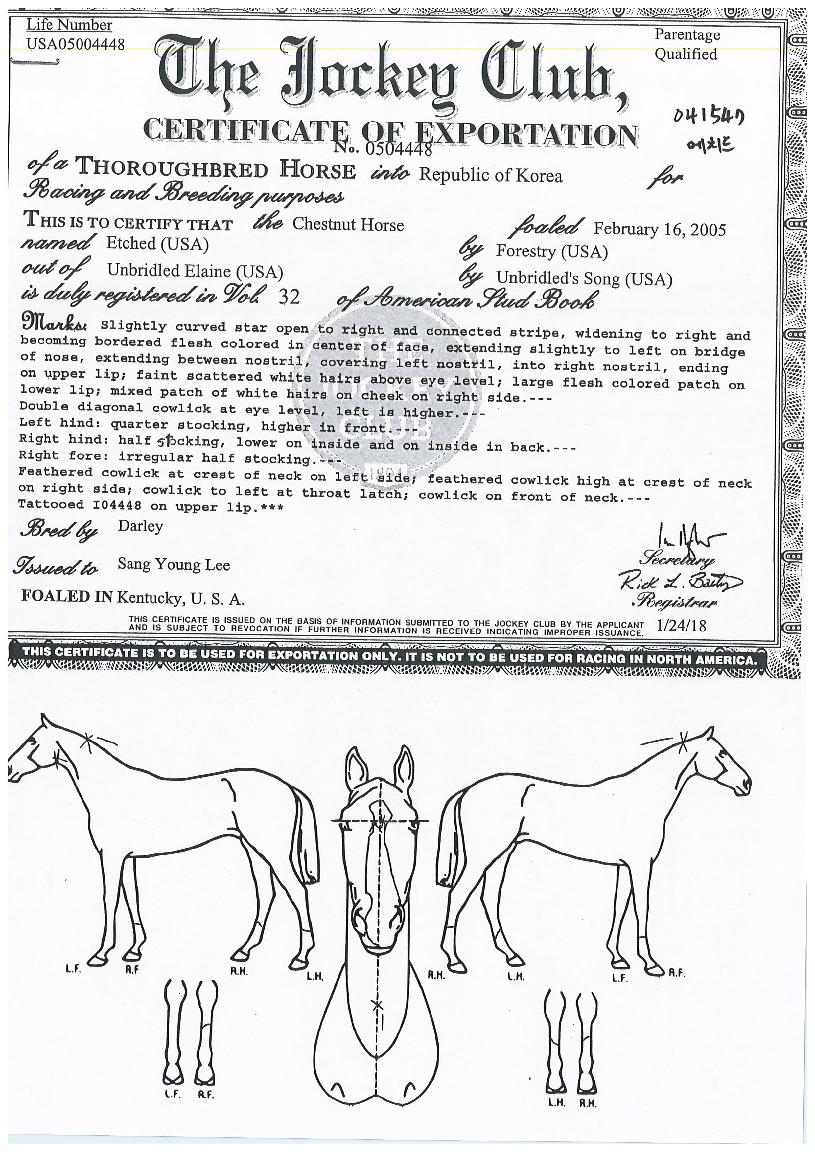 Life Number
USA05004448
Parentage
Qualified
The Jockey Club,
CERTIFICATE OF EXPORTATION
No. 0504448
041547
에치드
of a THOROUGHBRED HORSE into Republic of Korea for
Racing and Breeding purposes
THIS IS TO CERTIFY THAT the Chestnut Horse foaled February 16, 2005
named Etched (USA) by Forestry (USA)
out of Unbridled Elaine (USA) by Unbridled's Song (USA)
is duly registered in Vol. 32 of American Stud Book
Marks: Slightly curved star open to right and connected stripe, widening to right and
becoming bordered flesh colored in center of face, extending slightly to left on bridge
of nose, extending between nostril, covering left nostril, into right nostril, ending
on upper lip; faint scattered white hairs above eye level; large flesh colored patch on
lower lip; mixed patch of white hairs on cheek on right side.---
Double diagonal cowlick at eye level, left is higher.---
Left hind: quarter stocking, higher in front.---
Right hind: half stocking, lower on inside and on inside in back.---
Right fore: irregular half stocking.---
Feathered cowlick at crest of neck on left side; feathered cowlick high at crest of neck
on right side; cowlick to left at throat latch; cowlick on front of neck.---
Tattooed I04448 on upper lip.***
Bred by Darley
Issued to Sang Young Lee
Secretary
Rick L. Bailey
Registrar
FOALED IN Kentucky, U. S. A.
THIS CERTIFICATE IS ISSUED ON THE BASIS OF INFORMATION SUBMITTED TO THE JOCKEY CLUB BY THE APPLICANT
AND IS SUBJECT TO REVOCATION IF FURTHER INFORMATION IS RECEIVED INDICATING IMPROPER ISSUANCE. 1/24/18
THIS CERTIFICATE IS TO BE USED FOR EXPORTATION ONLY. IT IS NOT TO BE USED FOR RACING IN NORTH AMERICA.
L.F. R.F R.H. L.H. R.H. L.H. L.F. R.F.
L.F. R.F. L.H. R.H.